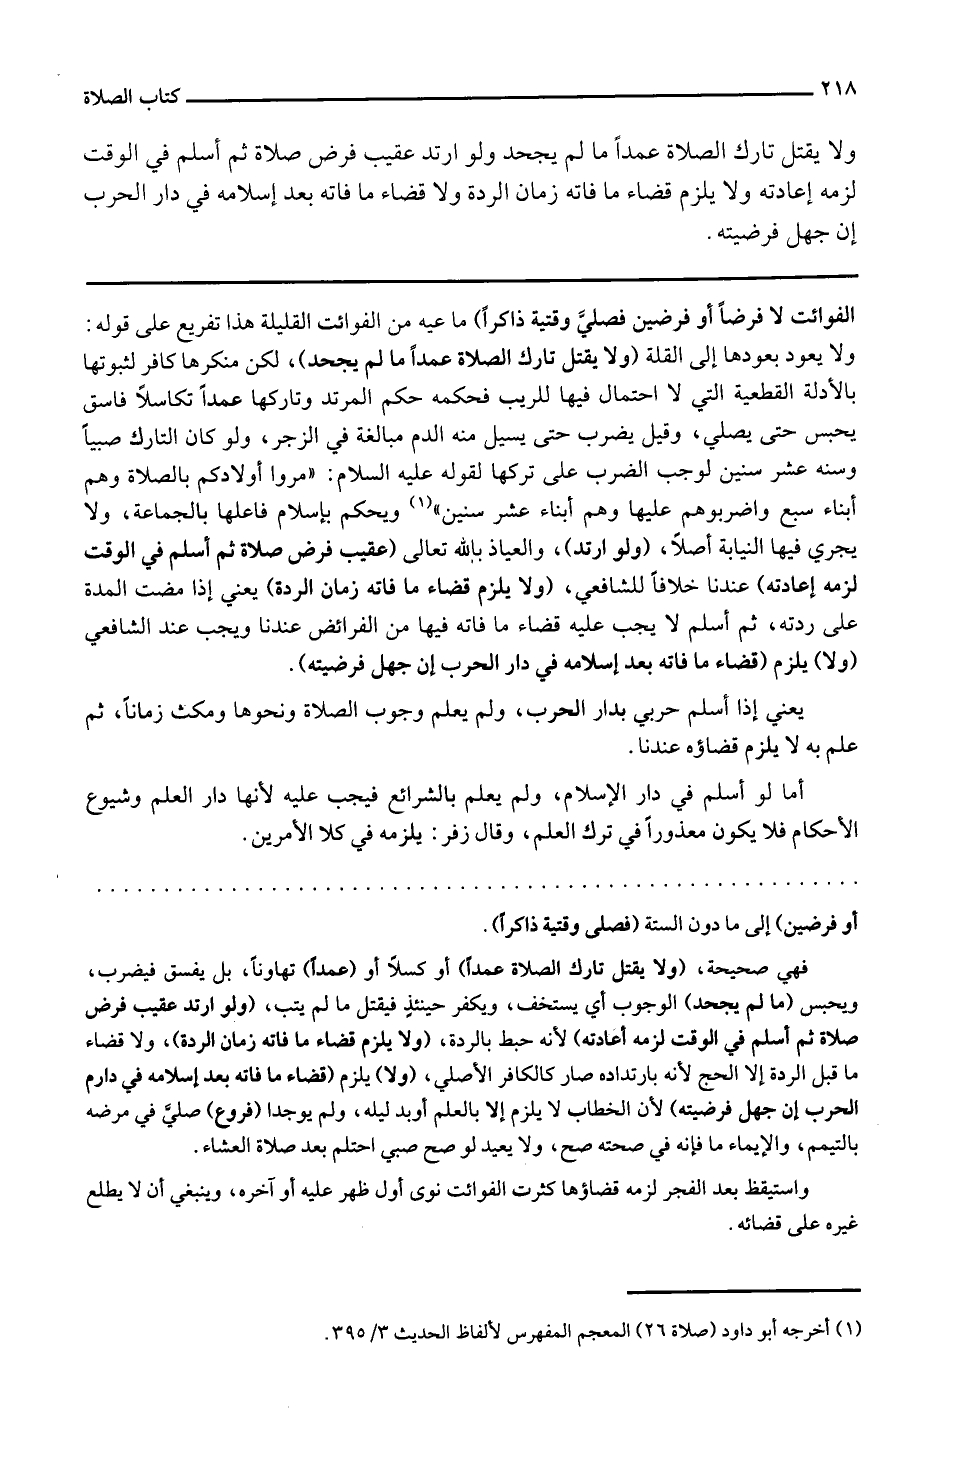 ٢١٨ كتاب الصلاة
ولا يقتل تارك الصلاة عمداً ما لم يجحد ولو ارتد عقيب فرض صلاة ثم أسلم في الوقت
لزمه إعادته ولا يلزم قضاء ما فاته زمان الردة ولا قضاء ما فاته بعد إسلامه في دار الحرب
إن جهل فرضيته.
الفوائت لا فرضاً أو فرضين فصليَّ وقتية ذاكراً) ما عيه من الفوائت القليلة هذا تفريع على قوله:
ولا يعود بعودها إلى القلة (ولا يقتل تارك الصلاة عمداً ما لم يجحد)، لكن منكرها كافر لثبوتها
بالأدلة القطعية التي لا احتمال فيها للريب فحكمه حكم المرتد وتاركها عمداً تكاسلاً فاسق
يحبس حتى يصلي، وقيل يضرب حتى يسيل منه الدم مبالغة في الزجر، ولو كان التارك صبياً
وسنه عشر سنين لوجب الضرب على تركها لقوله عليه السلام: «مروا أولادكم بالصلاة وهم
أبناء سبع واضربوهم عليها وهم أبناء عشر سنين»(١) ويحكم بإسلام فاعلها بالجماعة، ولا
يجري فيها النيابة أصلاً، (ولو ارتد)، والعياذ بالله تعالى (عقيب فرض صلاة ثم أسلم في الوقت
لزمه إعادته) عندنا خلافاً للشافعي، (ولا يلزم قضاء ما فاته زمان الردة) يعني إذا مضت المدة
على ردته، ثم أسلم لا يجب عليه قضاء ما فاته فيها من الفرائض عندنا ويجب عند الشافعي
(ولا) يلزم (قضاء ما فاته بعد إسلامه في دار الحرب إن جهل فرضيته).
يعني إذا أسلم حربي بدار الحرب، ولم يعلم وجوب الصلاة ونحوها ومكث زماناً، ثم
علم به لا يلزم قضاؤه عندنا.
أما لو أسلم في دار الإسلام، ولم يعلم بالشرائع فيجب عليه لأنها دار العلم وشيوع
الأحكام فلا يكون معذوراً في ترك العلم، وقال زفر: يلزمه في كلا الأمرين.
أو فرضين) إلى ما دون الستة (فصلى وقتية ذاكراً).
فهي صحيحة، (ولا يقتل تارك الصلاة عمداً) أو كسلاً أو (عمداً) تهاوناً، بل يفسق فيضرب،
ويحبس (ما لم يجحد) الوجوب أي يستخف، ويكفر حينئذٍ فيقتل ما لم يتب، (ولو ارتد عقيب فرض
صلاة ثم أسلم في الوقت لزمه أعادته) لأنه حبط بالردة، (ولا يلزم قضاء ما فاته زمان الردة)، ولا قضاء
ما قبل الردة إلا الحج لأنه بارتداده صار كالكافر الأصلي، (ولا) يلزم (قضاء ما فاته بعد إسلامه في دارم
الحرب إن جهل فرضيته) لأن الخطاب لا يلزم إلا بالعلم أوبد ليله، ولم يوجدا (فروع) صليَّ في مرضه
بالتيمم، والإيماء ما فإنه في صحته صح، ولا يعيد لو صح صبي احتلم بعد صلاة العشاء.
واستيقظ بعد الفجر لزمه قضاؤها كثرت الفوائت نوى أول ظهر عليه أو آخره، وينبغي أن لا يطلع
غيره على قضائه.
(١) أخرجه أبو داود (صلاة ٢٦) المعجم المفهرس لألفاظ الحديث ٣/ ٣٩٥.